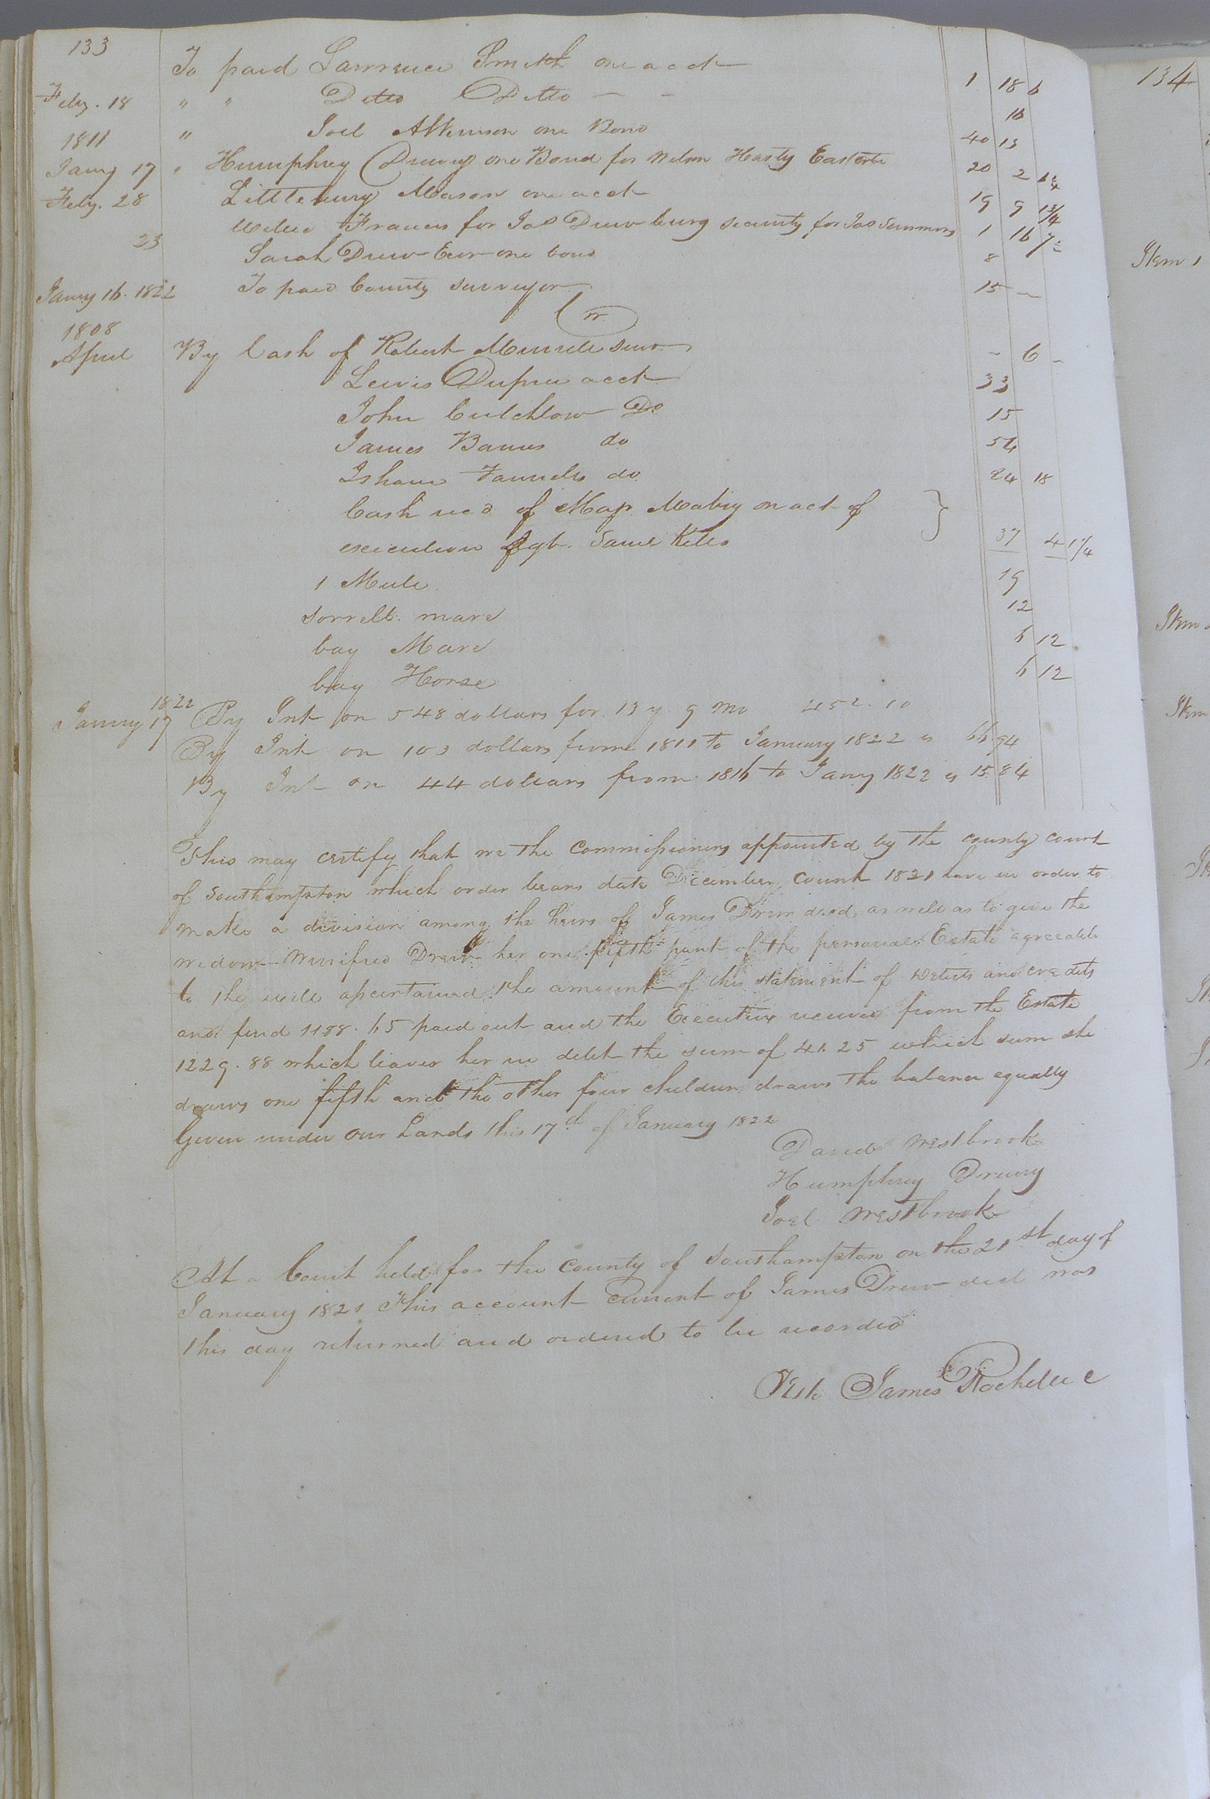 133
To paid Lawrence Smith one acct 1 18 6
Feby. 18 " " Ditto Ditto — — 16
1811 " Joel Atkinson one Bond 40 13
Jany 17 " Humphrey Drewry one Bond for Nelson Hasty 20 2
Feby. 28 Littlebury Mason one acct 19 9
Francis for Jas Drew being security for Jas Summons 1 16
23 Sarah Drew one bond 8
Jany 16. 1822 To paid County surveyor 15 —
Cr
1808
April By Cash of Robert — 6 —
Lewis Dupree acct 33
John Critchlow Do 15
James Barnes do 54
Isham do 24 18
Cash recd of Maj. Mabry on act of }
execution agt. Saml Kello 37 4 1/4
1 Mule 19
sorrell mare 12
bay Mare 6 12
bay Horse 6 12
1822
January 17 By Int on 548 dollars for 13 y 9 mo 452. 10
By Int on 103 dollars from 1811 to January 1822 is 66 94
By Int on 44 dollars from 1816 to Jany 1822 is 15 84
This may certify that we the Commissioners appointed by the county court
of Southampton which order bears date December court 1821 have in order to
make a division among the heirs of James Drew decd, as well as to give the
widow Winnifred Drew her one fifth part of the personal Estate agreeable
to the will ascertained the amount of this statement of Debts and credits
and find 1188. 65 paid out and the Executrix received from the Estate
1229. 88 which leaves her in debt the sum of 41. 25 which sum she
draws one fifth and the other four children draws the balance equally
Given under our hands this 17th of January 1822
David Westbrook
Humphrey Drewry
Joel Westbrook
At a Court held for the County of Southampton on the 21st day of
January 1821 This account current of James Drew decd was
this day returned and ordered to be recorded
Teste James Rochelle C
134
Item 1
Item
Item